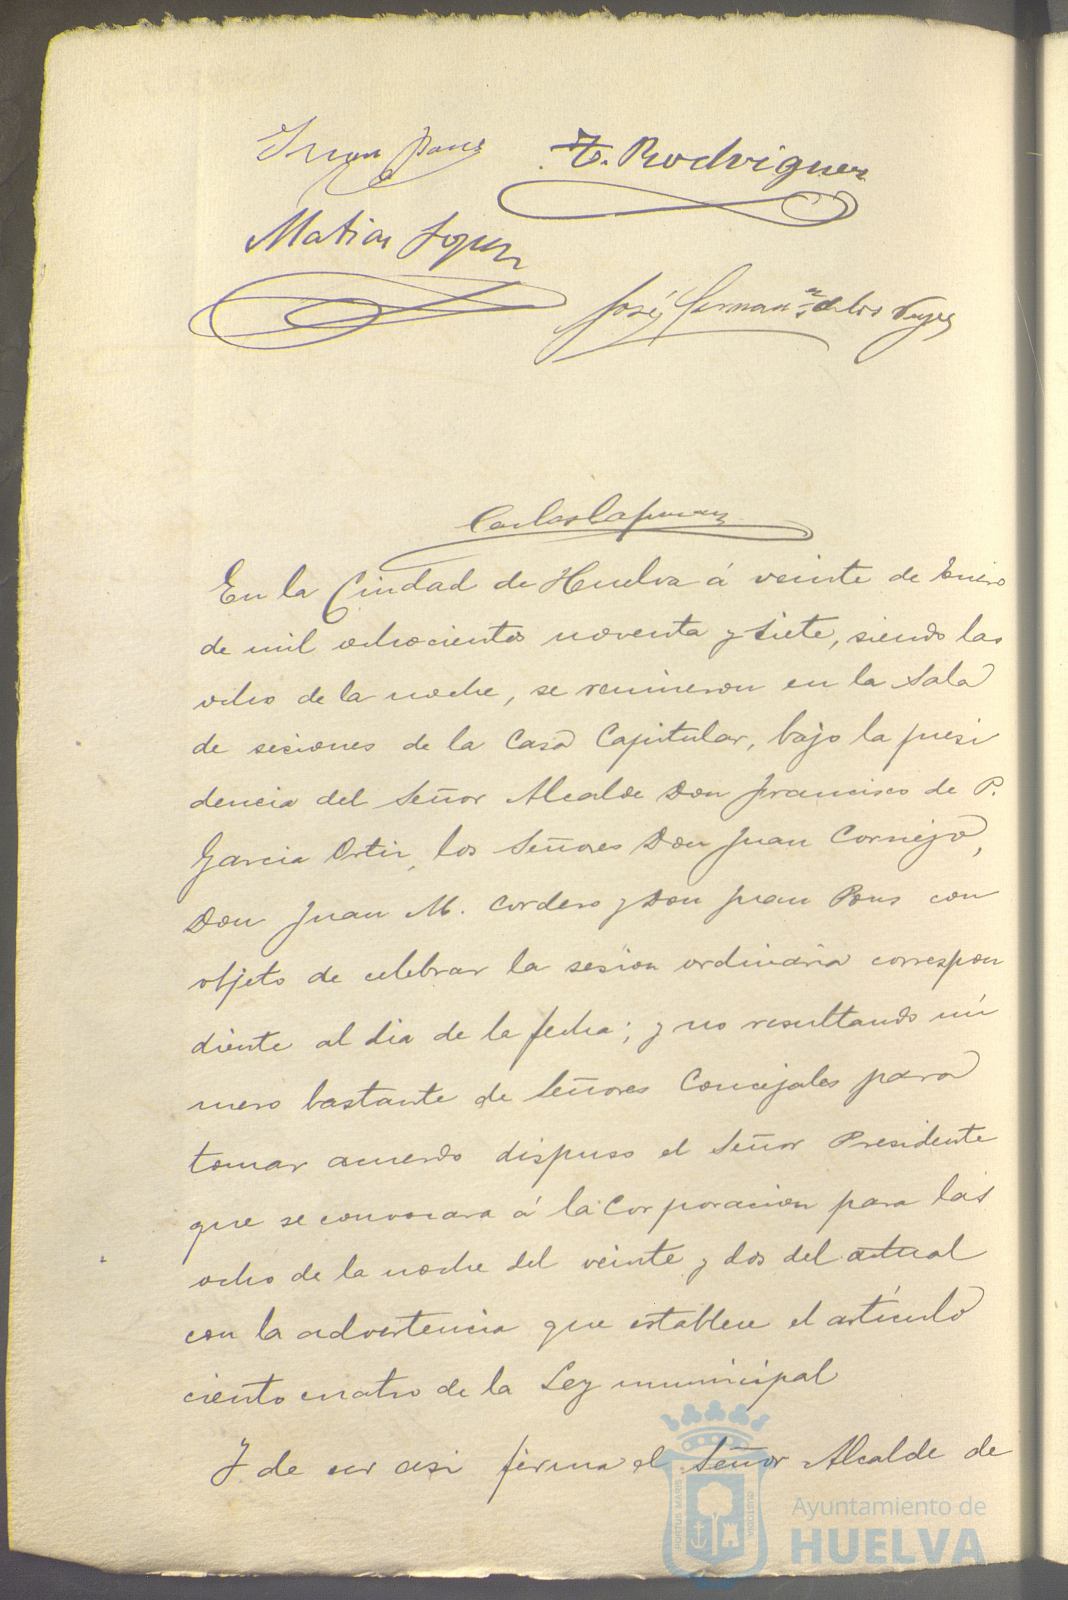 Juan Pons
T. Rodriguez
Matias Lopez
José Hernan.ᶻ de los Reyes
Carlos
En la Ciudad de Huelva á veinte de Enero
de mil ochocientos noventa y siete, siendo las
ocho de la noche, se reunieron en la Sala
de sesiones de la Casa Capitular, bajo la presi
dencia del Señor Alcalde Don Francisco de P.
Garcia Ortiz, los Señores Don Juan Cornejo,
Don Juan M. Cordero y Don Juan Pons con
objeto de celebrar la sesion ordinaria correspon
diente al dia de la fecha; y no resultando nú
mero bastante de Señores Concejales para
tomar acuerdo dispuso el Señor Presidente
que se convocara á la Corporacion para las
ocho de la noche del veinte y dos del actual
con la advertencia que establece el artículo
ciento cuatro de la Ley municipal
Y de ser asi firma el Señor Alcalde de
PORTUS MARIS
CUSTODIA
Ayuntamiento de
HUELVA